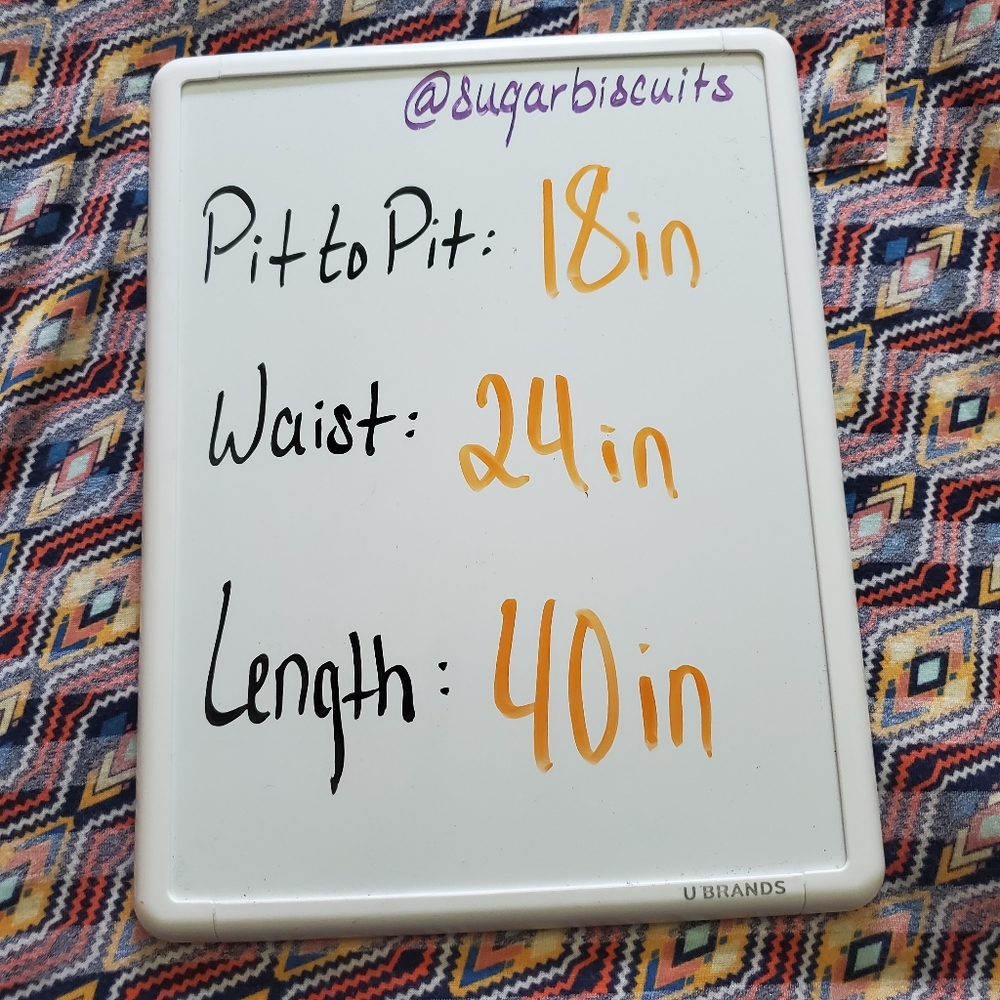 @sugarbiscuits
Pit to Pit: 18in
Waist: 24in
Length: 40in
U BRANDS